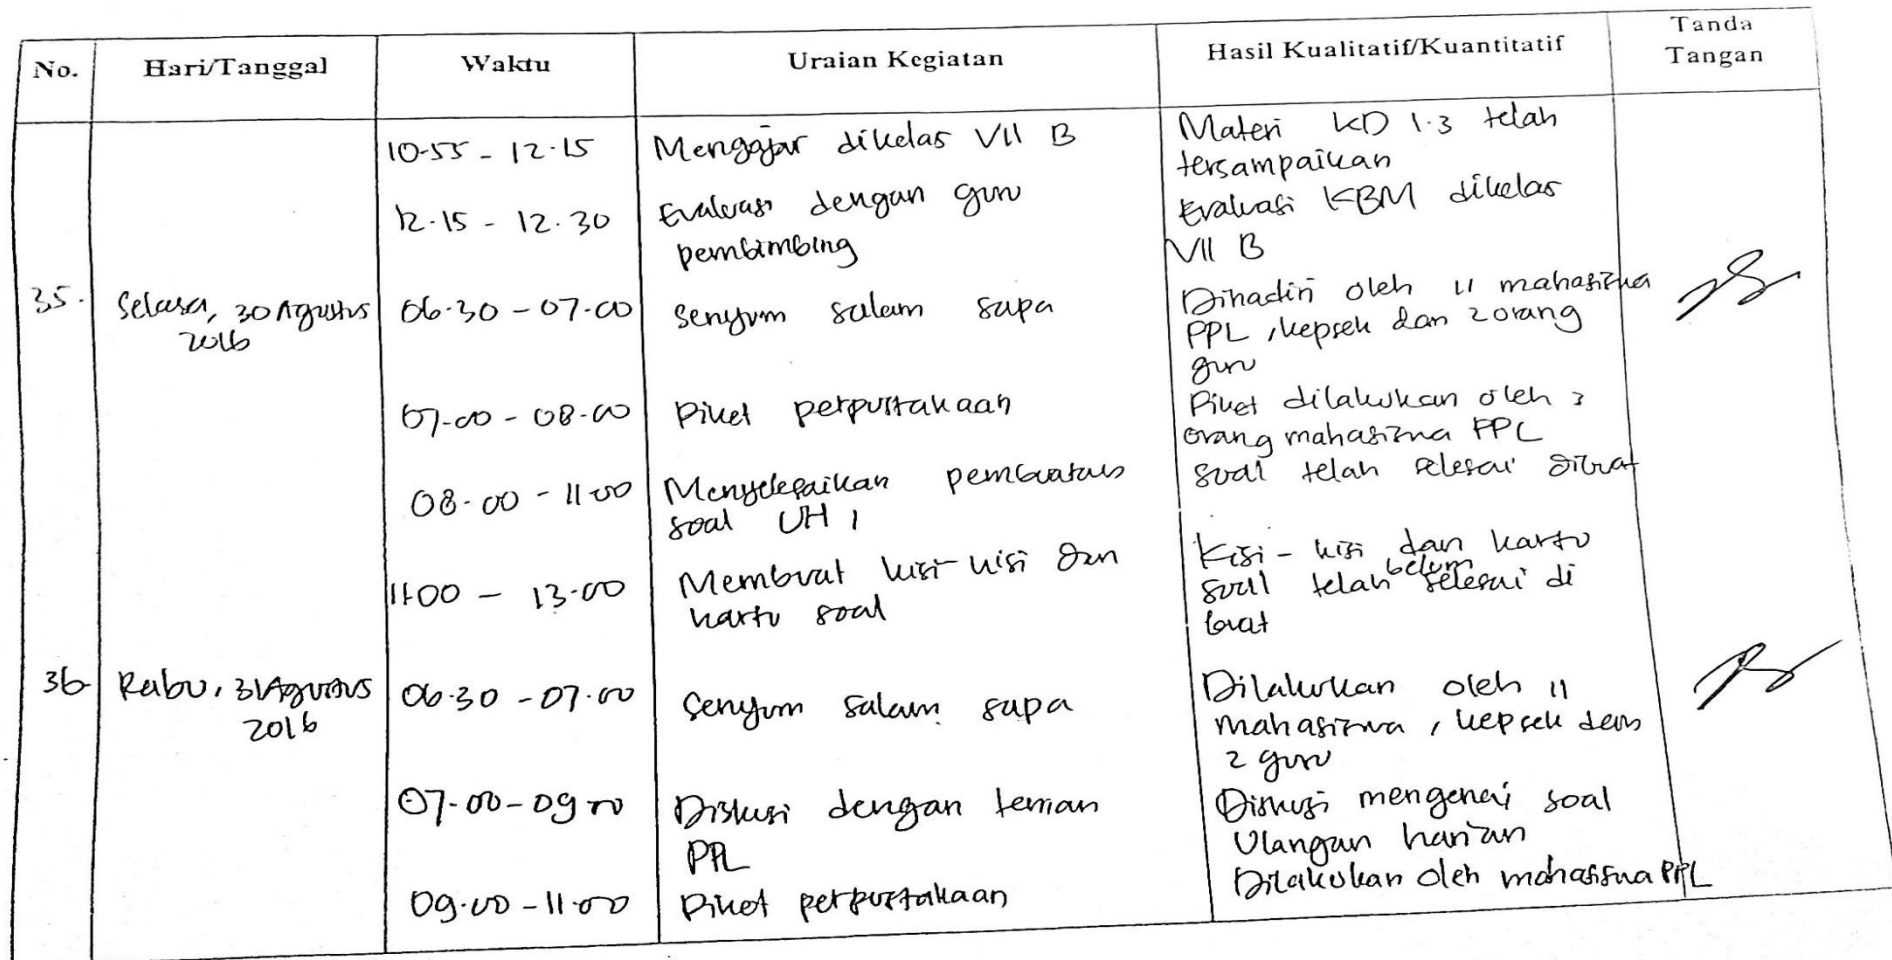 No. Hari/Tanggal Waktu Uraian Kegiatan Hasil Kualitatif/Kuantitatif Tanda Tangan
10.55 - 12.15 Mengajar dikelas VII B Materi KD 1.3 telah
tersampaikan
12.15 - 12.30 Evaluasi dengan guru Evaluasi KBM dikelas
pembimbing VII B
35. Selasa, 30 Agustus 06.30 - 07.00 Senyum salam sapa Dihadiri oleh 11 mahasiswa
2016 PPL, kepsek dan 2 orang
guru
07.00 - 08.00 Piket perpustakaan Piket dilakukan oleh 3
orang mahasiswa PPL
08.00 - 11.00 Menyelesaikan pembuatan soal telah selesai dibuat
soal UH 1
11.00 - 13.00 Membuat kisi-kisi dan Kisi-kisi dan kartu
kartu soal soal telah belum selesai di
buat
36. Rabu, 31 Agustus 06.30 - 07.00 Senyum salam sapa Dilakukan oleh 11
2016 mahasiswa, kepsek dan
2 guru
07.00 - 09.00 Diskusi dengan teman Diskusi mengenai soal
PPL Ulangan harian
09.00 - 11.00 Piket perpustakaan Dilakukan oleh mahasiswa PPL